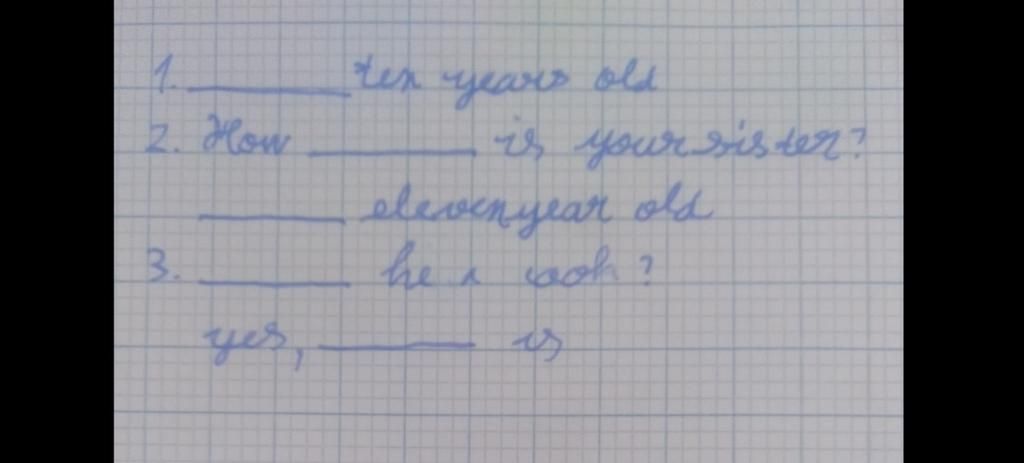 1. ________ ten years old
2. How ________ is your sister?
________ eleven year old
3. ________ he a cook?
yes, ________ is